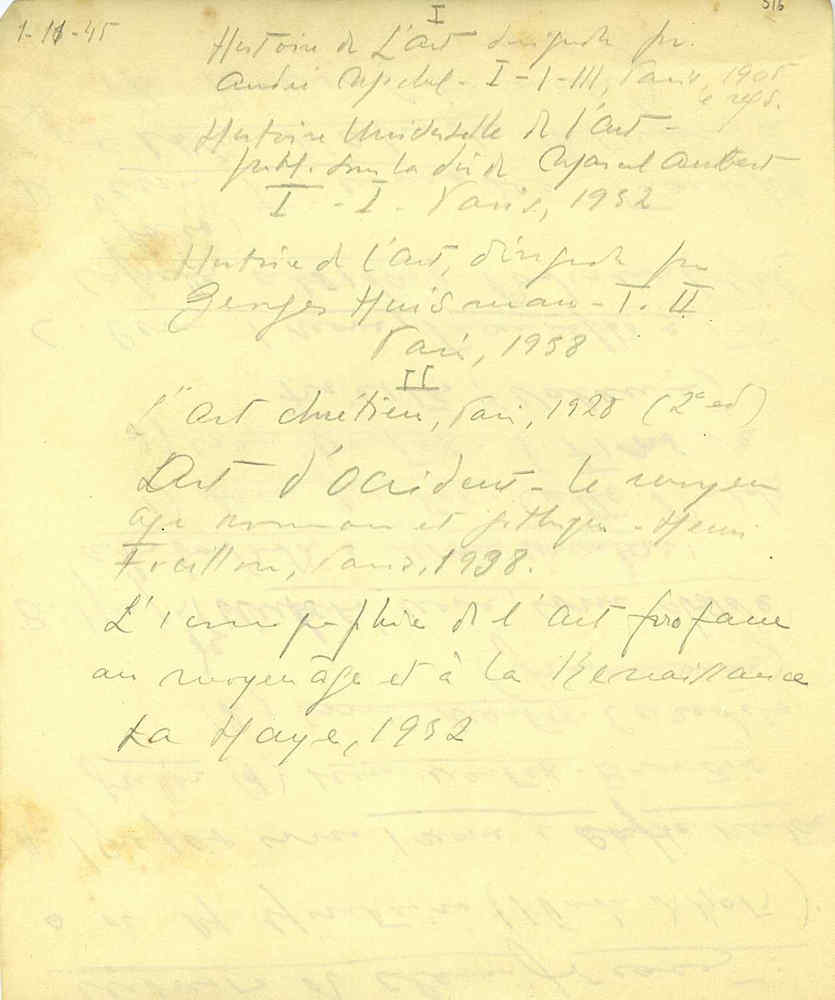 I
516
1-11-45
Histoire de L'Art dirigida por
André Michel - I-I-III, Paris, 1905
e segs.
Histoire Universelle de l'Art -
publ. sous la dir. de Marcel Aubert
I - I - Paris, 1932
Histoire de l'Art, dirigida por
Georges Huisman - I. II
Paris, 1938
II
L'art chrétien, Paris, 1928 (2ª ed)
L'Art d'Occident - le moyen
age roman et gothique - Henri
Focillon, Paris, 1938.
L'iconographie de l'art profane
au moyen âge et à la Renaissance
La Haye, 1932